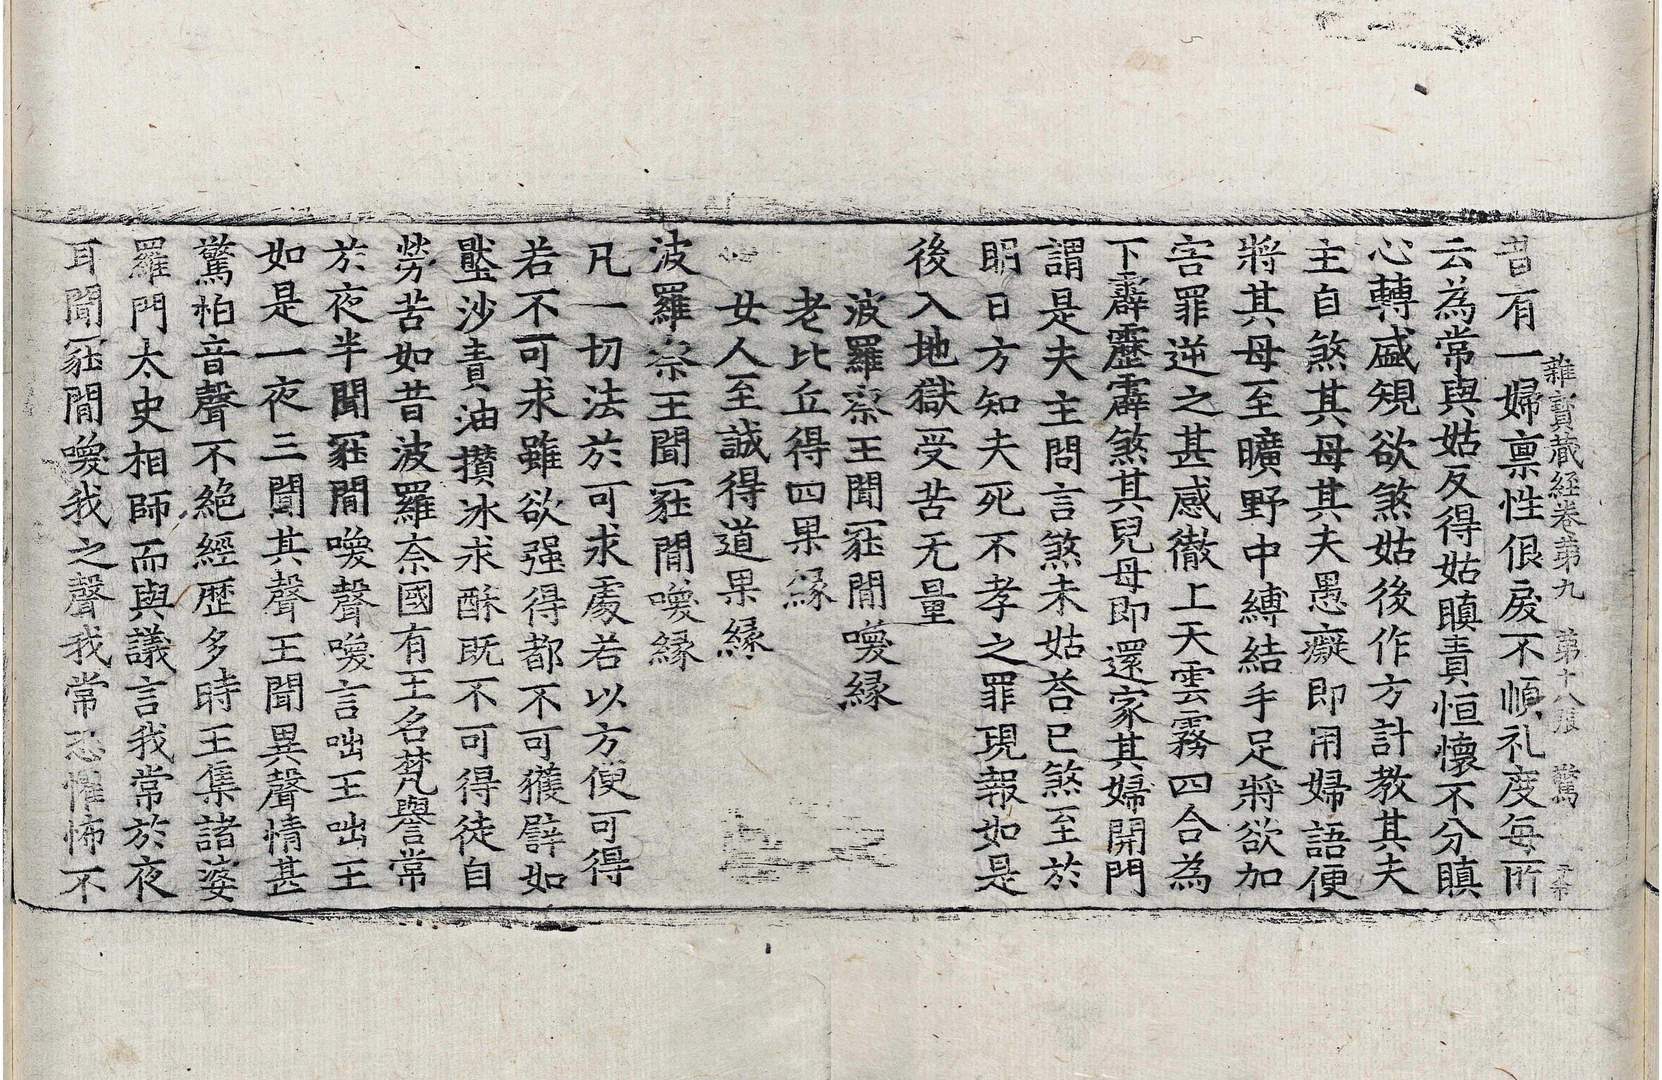 雜寳藏經卷第九　第十八張　驚
昔有一婦禀性佷戾不順礼度每所
云為常與姑反得姑瞋責恒懷不分瞋
心轉盛規欲煞姑後作方計教其夫
主自煞其母其夫愚癡即用婦語便
將其母至曠野中縛結手足將欲加
害罪逆之甚感徹上天雲霧四合為
下霹靂霹煞其兒母即還家其婦開門
謂是夫主問言煞未姑荅已煞至於
明日方知夫死不孝之罪現報如是
後入地獄受苦无量
波羅柰王聞冢間喚縁
老比丘得四果縁
女人至誠得道果縁
波羅柰王聞冢間喚縁
凡一切法於可求處若以方便可得
若不可求雖欲强得都不可獲譬如
壓沙責油攅冰求酥既不可得徒自
勞苦如昔波羅柰國有王名梵譽常
於夜半聞冢間喚聲喚言咄王咄王
如是一夜三聞其聲王聞異聲情甚
驚怕音聲不絶經歷多時王集諸婆
羅門太史相師而與議言我常於夜
耳聞冢間喚我之聲我常恐懼怖不